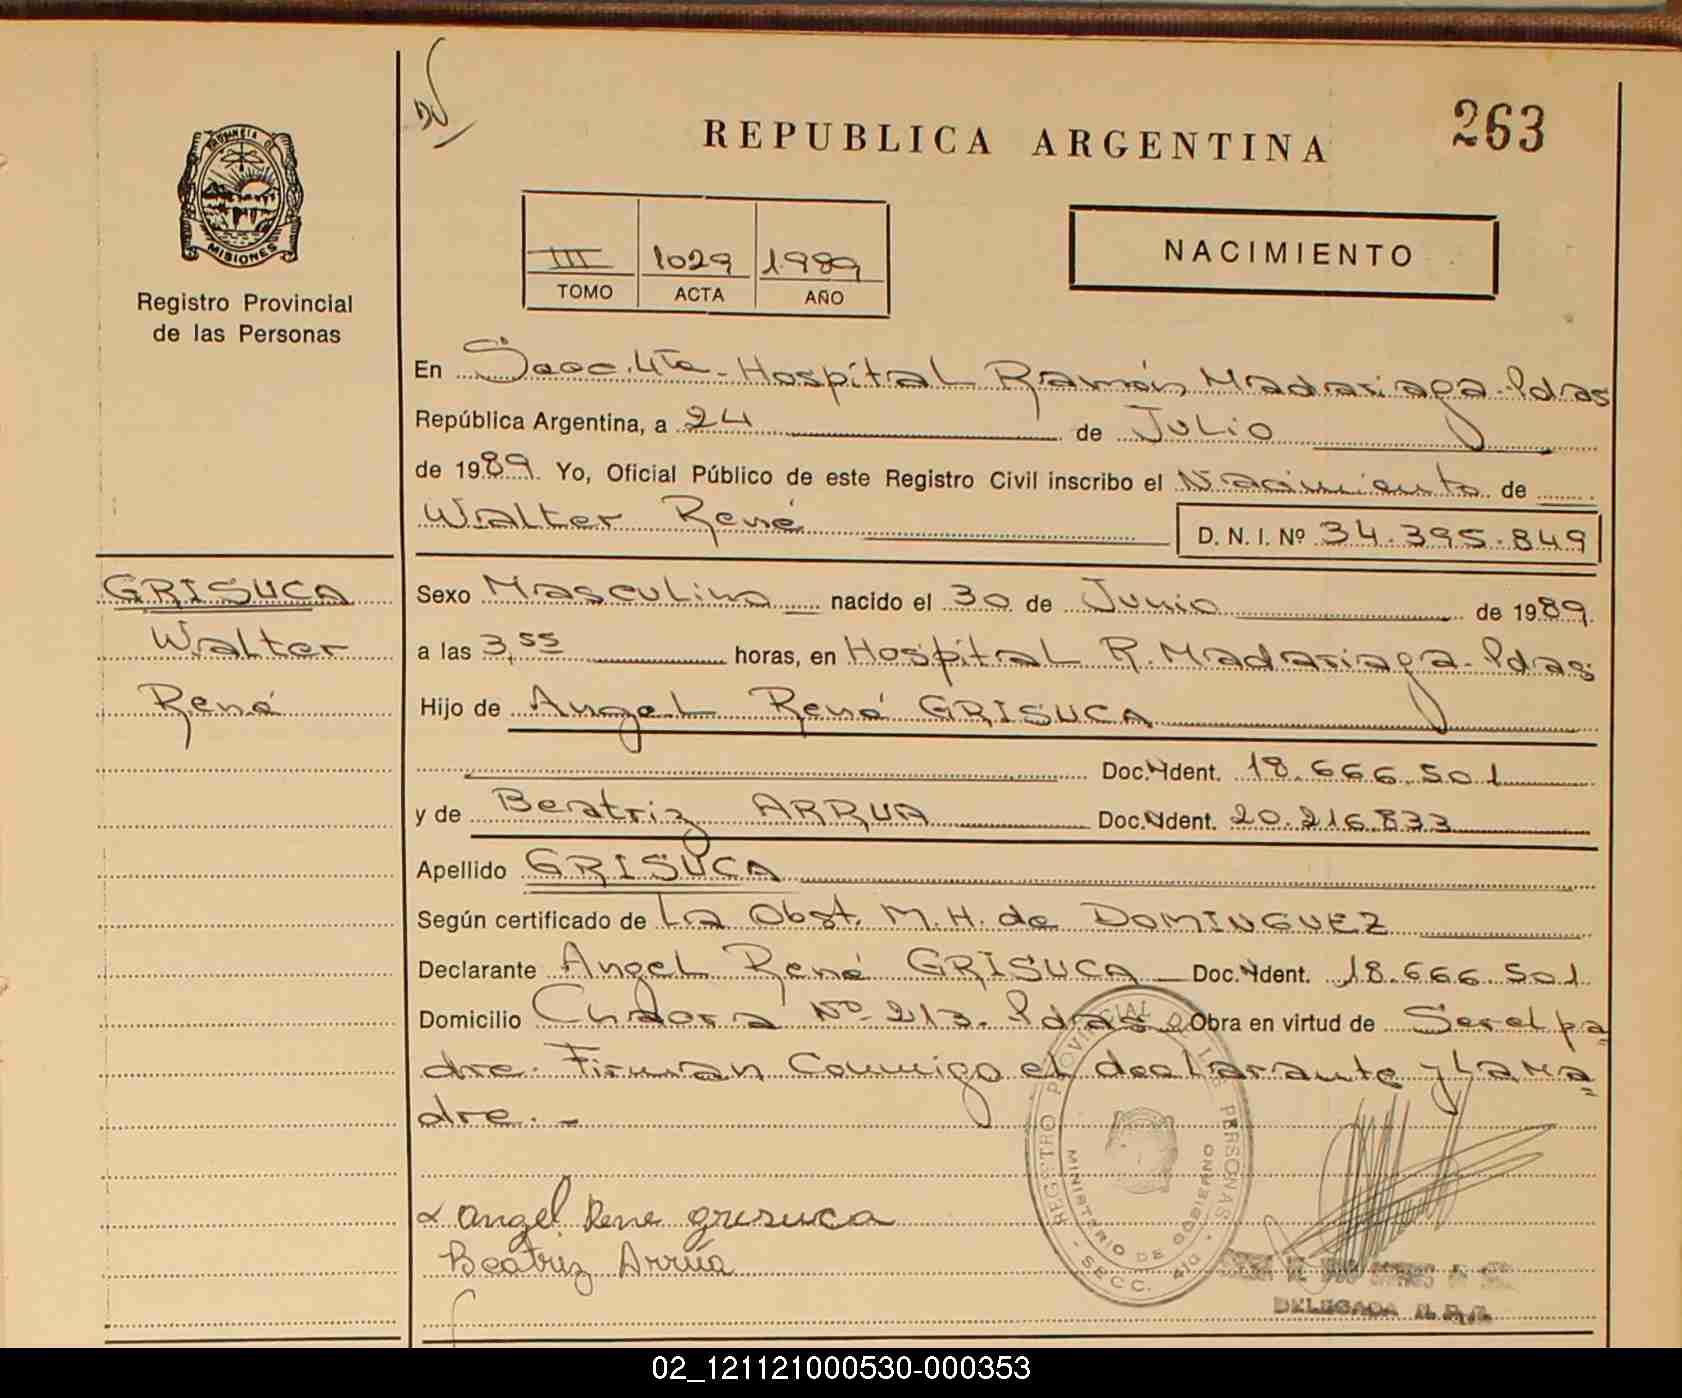 263
REPUBLICA ARGENTINA
PROVINCIA DE
MISIONES
Registro Provincial
de las Personas
III 1029 1989
TOMO ACTA AÑO
NACIMIENTO
En Secc. 4ta - Hospital Ramón Madariaga - Pdas
República Argentina, a 24 de Julio
de 1989. Yo, Oficial Público de este Registro Civil inscribo el Nacimiento de
Walter René D. N. I. Nº 34.395.849
GRISUCA
Walter
René
Sexo Masculino nacido el 30 de Junio de 1989.
a las 3,55 horas, en Hospital R. Madariaga - Pdas
Hijo de Angel René GRISUCA
Doc. Ident. 18.666.501
y de Beatriz ARRUA Doc. Ident. 20.216.833
Apellido GRISUCA
Según certificado de La Obst. M. H. de DOMINGUEZ
Declarante Angel René GRISUCA Doc. Ident. 18.666.501
Domicilio Nº 213 - Pdas Obra en virtud de Ser el pa=
dre. Firman Conmigo el declarante y La Ma=
dre. -
Angel Rene grisuca
Beatriz Arrúa
REGISTRO PROVINCIAL DE LAS PERSONAS
MINISTERIO DE GOBIERNO
SECC. 4ta
DELEGADA R. P. P.
02_121121000530-000353